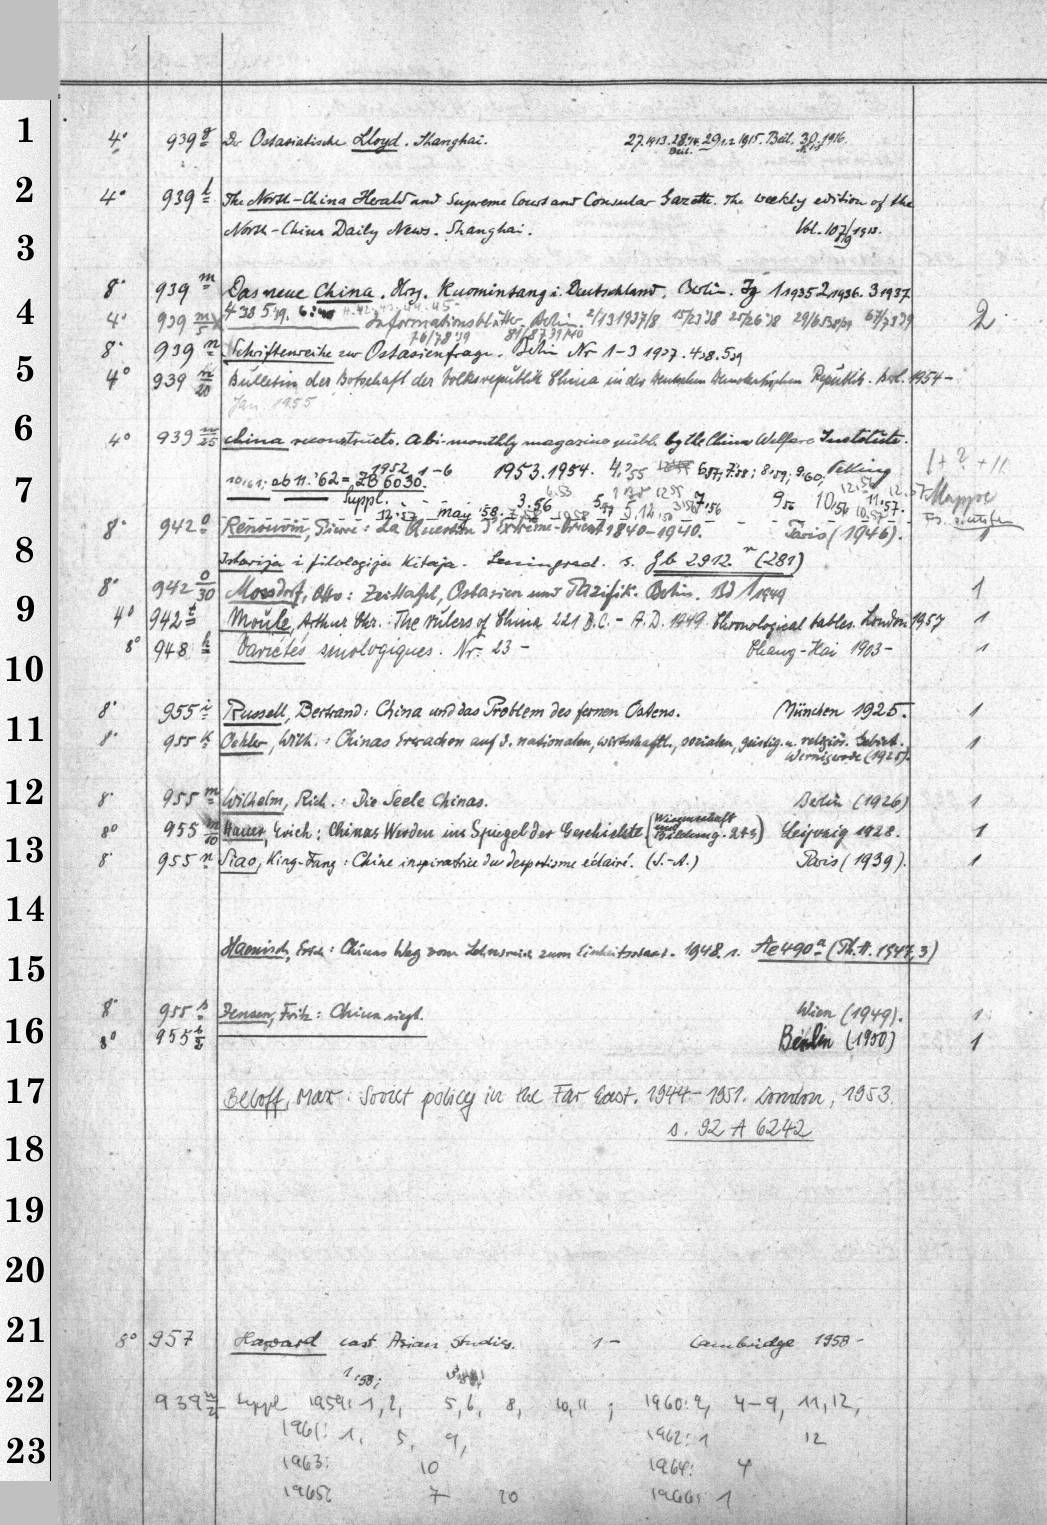 1
4° 939 g Der Ostasiatische Lloyd. Shanghai. 27.1913. 28.14. 29 1.2 1915. Beil. 30. 1916.
Beil.
2
4° 939 l The North-China Herald and Supreme Court and Consular Gazette. The weekly edition of the
North-China Daily News. Shanghai. Vol. 107/
3
8° 939 m Das neue China. Hrsg. Kuomintang i. Deutschland. Berlin. Jg 1 1935 2 1936. 3 1937
4. 38 5. 39.
4
4° 939 m/5 Informationsblätter, Berlin 2/13 1937/8 15/23 '38 25/26 '38 67/73 '39 2
76/78 '39
8° 939 n Schriftenreihe zur Ostasienfrage. Berlin Nr 1-3 1937. 4 38. 5 39
5
4° 939 n/20 Bulletin der Botschaft der Volksrepublik China in der Deutschen Demokratischen Republik. Brl. 1954-
Jan. 1955
6
4° 939 n/25 China reconstructs. A bi-monthly magazine publ. by the China Welfare Institute.
1952 1-6 1953. 1954. Peking
ab 11. '62 = ZB 6030.
7
Suppl. 3.56 Mappe
may '58.
8° 942 o Renouvin, Pierre: La Question d'Extrême-Orient 1840-1940. Paris (1946). 1
8
Istorija i filologija Kitaja. Leningrad. s. Zb 2912 n (281)
8° 942 o/30 Mossdorf, Otto: Zeittafel, Ostasien und Pazifik. Berlin. Bd 1 1949 1
9
4° 942 t Moule, Arthur Chr.: The rulers of China 221 B.C. - A.D. 1949. Chronological tables. London 1957 1
8° 948 h Variétés sinologiques. Nr. 23 - Chang-Hai 1903- 1
10
8° 955 i Russell, Bertrand: China und das Problem des fernen Ostens. München 1925. 1
11
8° 955 k Oehler, Wilh.: Chinas Erwachen auf d. nationalen, wirtschaftl., sozialen, geistig. u. religiös. Gebiet.
Wernigerode (1925). 1
12
8° 955 m Wilhelm, Rich.: Die Seele Chinas. Berlin (1926) 1
8° 955 m/10 Hauer, Erich: Chinas Werden im Spiegel der Geschichte. (Wissenschaft und Bildung. 243) Leipzig 1928. 1
13
8° 955 n Siao, King-Fang: Chine inspiratrice du despotisme éclairé. (S.-A.) Paris (1939). 1
14
Haenisch, Erich: Chinas Weg vom Lehnsreich zum Einheitsstaat. 1948. s. Ae 490 a (Th. H. 1947, 3)
15
8° 955 s Jensen, Fritz: China siegt. Wien (1949). 1
16
8° 955 s/2 Berlin (1950) 1
17
Beloff, Max: Soviet policy in the Far East. 1944-1951. London, 1953.
s. 92 A 6242
18
19
20
21
8° 957 Harvard East Asian Studies. 1- Cambridge 1958-
1.58;
22
939 Suppl 1959: 1, 2, 5, 6, 8, 10, 11; 1960: 2, 4-9, 11, 12,
1961: 1, 5, 9, 1962: 1 12
23
1963: 10 1964: 4
1965: 7 20 1966: 1